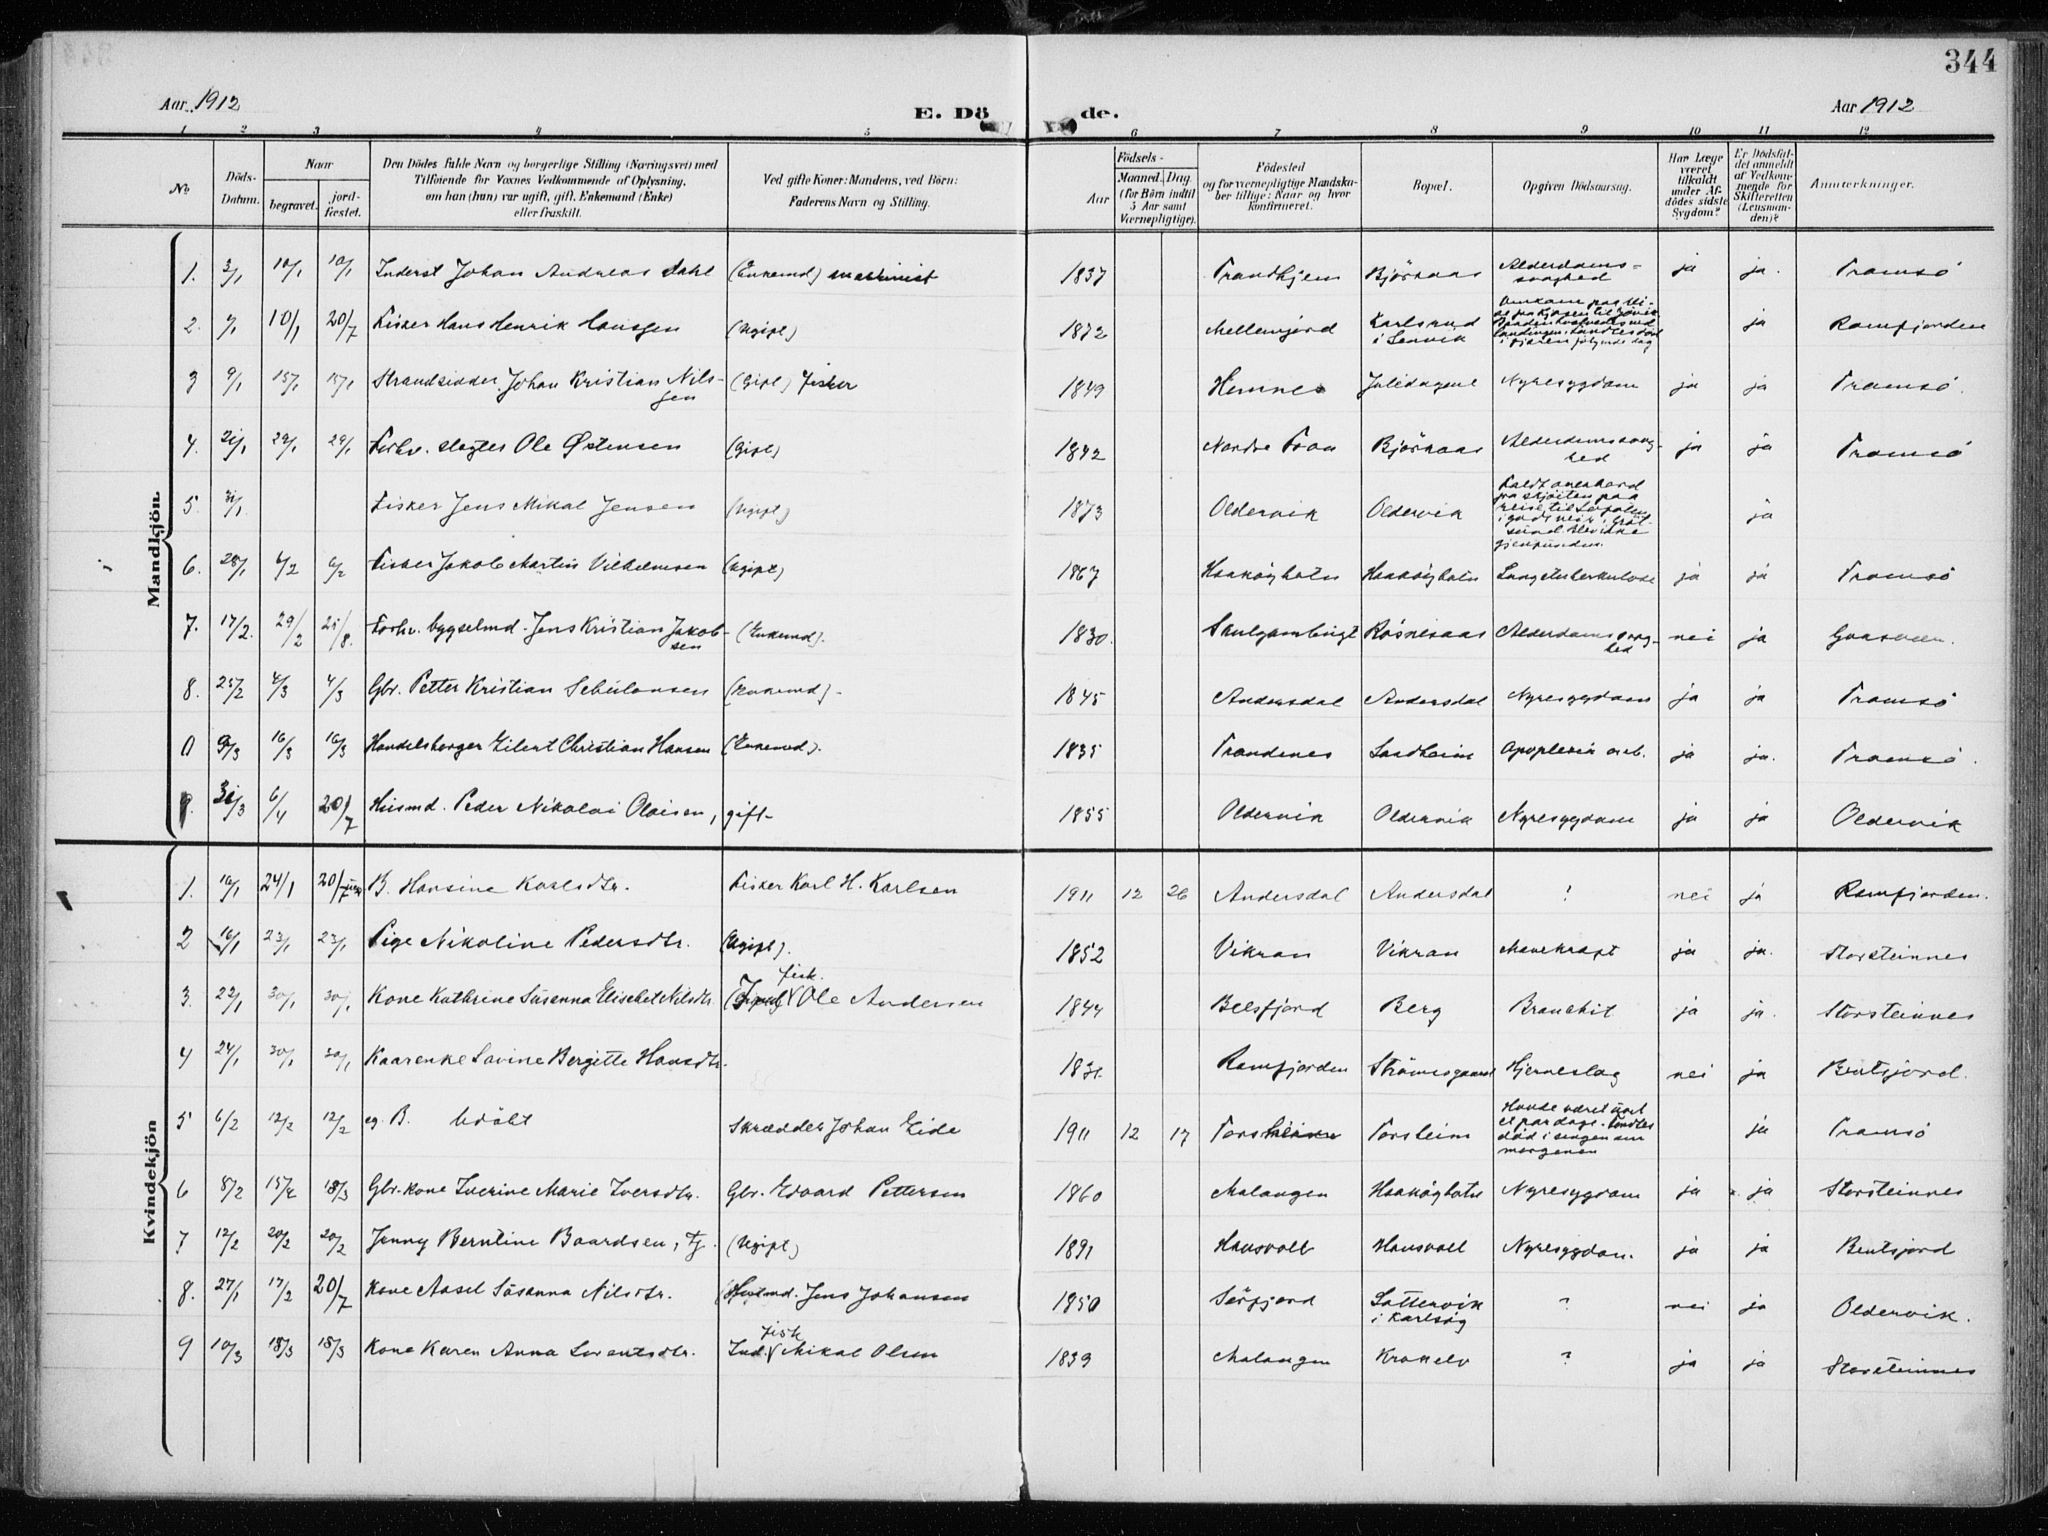 344
Aar 1912 E. Dö de. Aar 1912
1 2 3 4 5 6 7 8 9 10 11 12
No
Döds-Datum.
Naar
begravet.
jord-fæstet.
Den Dödes fulde Navn og borgerlige Stilling (Næringsvei) med
Tilföiende for Voxnes Vedkommende af Oplysning,
om han (hun) var ugift, gift, Enkemand (Enke)
eller fraskilt.
Ved gifte Koner: Mandens, ved Börn:
Faderens Navn og Stilling.
Födsels-
Aar
Maaned. Dag
(for Börn indtil
5 Aar samt
Værnepligtige).
Födested
og for værnepligtige Mandska-
ber tillige: Naar og hvor
konfirmeret.
Bopæl.
Opgiven Dödsaarsag.
Har Læge
været
tilkaldt
under Af-
dödes sidste
Sygdom?
Er Dödsfal-
det anmeldt
af Vedkom-
mende for
Skifteretten
(Lensman-
den)?
Anmærkninger.
Mandkjön
1. 3/1 10/1 10/1 Inderst Johan Andreas Dahl (Enkemd) maskinist 1837 Trondhjem Björnaas Alderdoms-
svaghed ja ja. Tromsö
2. 10/1 20/7 Fisker Hans Henrik Hanssen (Ugift) 1872 Mellemjord Karlsrud
i Lenvik ja Ramfjorden
3 9/1 15/1 15/1 Strandsidder Johan Kristian Nils-
sen (Gift) Fisker 1849 Hemnes Juledagene Nyresygdom ja ja Tromsö.
4. 21/1 29/1 29/1 Forhv. slagter Ole Østensen (Gift) 1842 Nordre Fron Björnaas Alderdomssvag-
hed ja ja Tromsö
5. 31/1 Fisker Jens Mikal Jensen (Ugift) 1873 Oldervik Oldervik Faldt overbord
fra skjöiten paa
reise til
gjenfunden. ja
6. 28/1 6/2 6/2 Fisker Jakob Martin Vilhelmsen (Ugift) 1867 Haaköybotn Haaköybotn Lungetuberkulose ja ja Tromsö
7. 17/2. 29/2 25/8. Forhv. bygselmd. Jens Kristian Jakob-
sen (Enkemd). 1830. Skulgambugt Rösnesaas Alderdomssvag-
hed nei ja
8. 25/2 4/3 4/3 Gbr. Petter Kristian Schulonsen (Enkemd)- 1845 Andersdal Andersdal Nyresygdom ja ja Tromsö
9/3 16/3 16/3 Handelsborger Eilert Christian Hansen (Enkemd). 1835 Trondenes Sandheim Apoplexia cereb. ja ja. Tromsö.
9. 31/3 6/4 20/7 Husmd. Peder Nikolai Olaisen, gift- 1855 Oldervik Oldervik Nyresygdom ja ja Oldervik
Kvindekjön
1. 16/1 24/1 20/7 B. Hansine Karlsdtr. Fisker Karl H. Karlsen 1911 12 26 Andersdal Andersdal ? nei ja Ramfjorden.
2 16/1 23/1 23/1 Pige Nikoline Pedersdtr. (Ugift). 1852 Vikran Vikran Mavekraft ja ja. Storsteinnes
3. 22/1 30/1 30/1 Kone Kathrine Susanna Elisebet Nilsdtr. fisk. Ole Andersen 1844 Belsfjord Berg Bronchit ja ja. Storsteinnes
4 24/1 30/1 30/1 Kaarenke Lovine Bergitte Hansdtr. 1831 Ramfjorden Strömsgaard Hjerneslag nei ja Bentsjord.
5 6/2 12/2 12/2 eg. B. udöbt Skrædder Johan Eide 1911 12 17 Torsheim Torsheim Havde været
et par dage. Fandtes
död i sengen om
morgenen ja Tromsö
6 8/2 15/2 18/3 Gbr.kone Iverine Marie Iversdtr. Gbr. Edvard Pettersen 1860 Malangen Haaköybotn Nyresygdom ja ja Storsteinnes
7 12/2 20/2 20/2 Jenny Berntine Baardsen, tj. (Ugift) 1891 Hansvoll Hansvoll Nyresygdom. ja ja Bentsjord
8. 27/1 17/2 20/7 Kone Aasel Susanna Nilsdtr. Husmd. Jens Johansen 1850 Sörfjord Lattervik
i Karlsöy ? nei ja Oldervik.
9 10/3 18/3 18/3 Kone Karen Anna Lorentsdtr. Ind. fisk Mikal Olsen 1839 Malangen Krokelv ? ja ja Storsteinnes